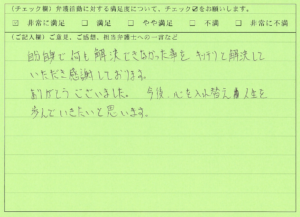 (チェック欄) 弁護活動に対する満足度について、チェック☑をお願いします。
☑ 非常に満足 □ 満足 □ やや満足 □ 不満 □ 非常に不満
(ご記入欄) ご意見、ご感想、担当弁護士への一言など
自分自身で何も解決できなかった事を、きっちりと解決して
いただき感謝しております。
ありがとうございました。今後、心を入れ替え人生を
歩んでいきたいと思います。